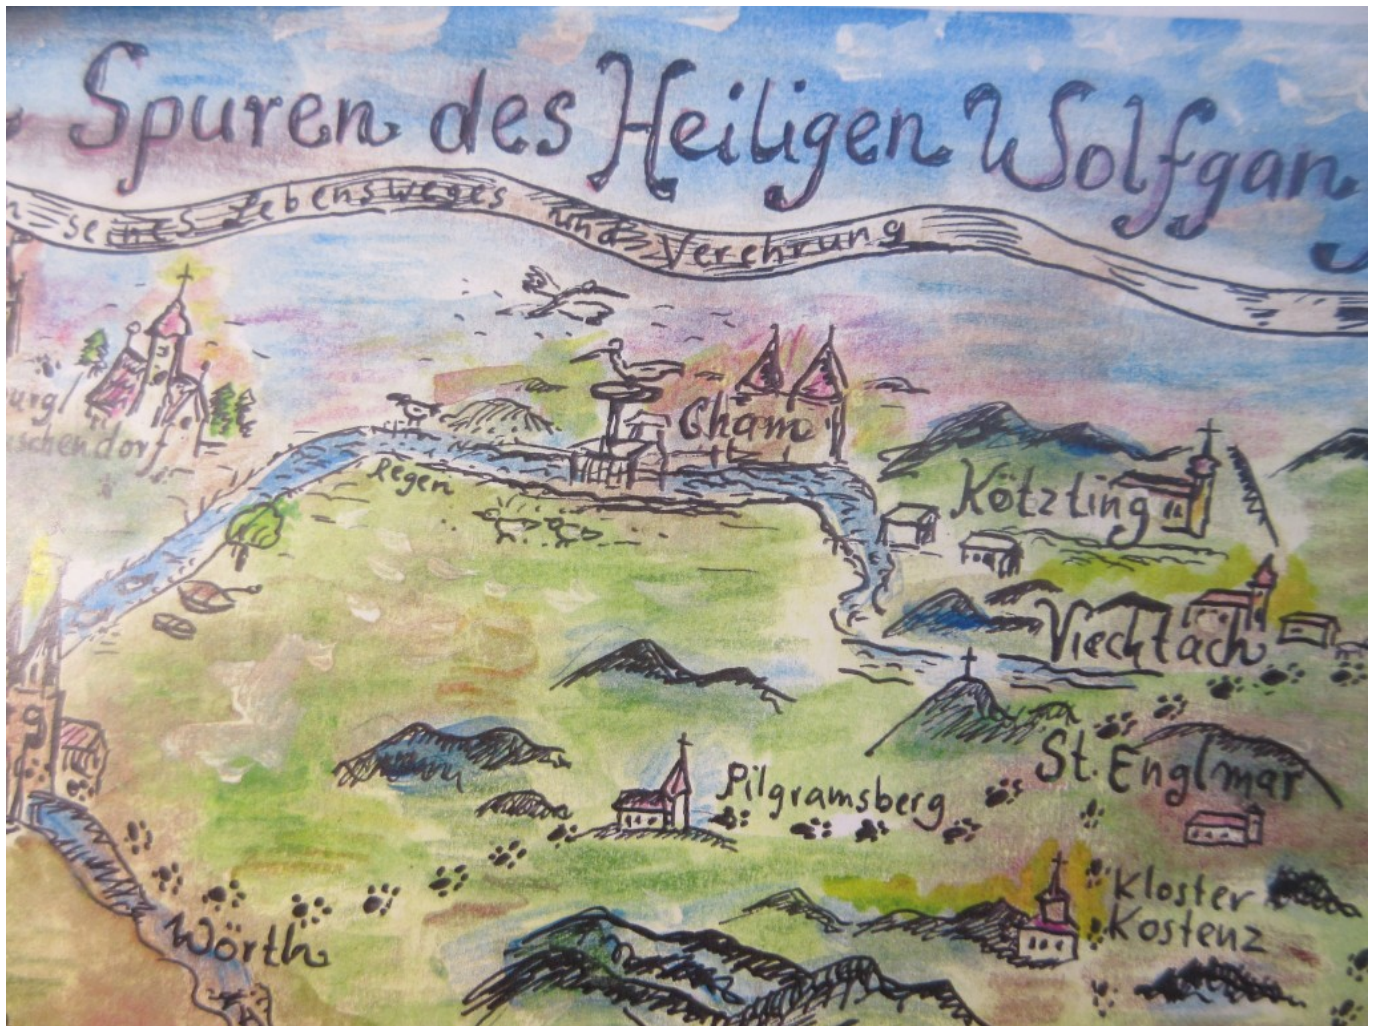 Spuren des Heiligen Wolfgan
seines Lebensweges und Verehrung
Cham
urg
schendorf
Regen
Kötzting
Viechtach
St. Englmar
Pilgramsberg
Kloster
Kostenz
Wörth
g